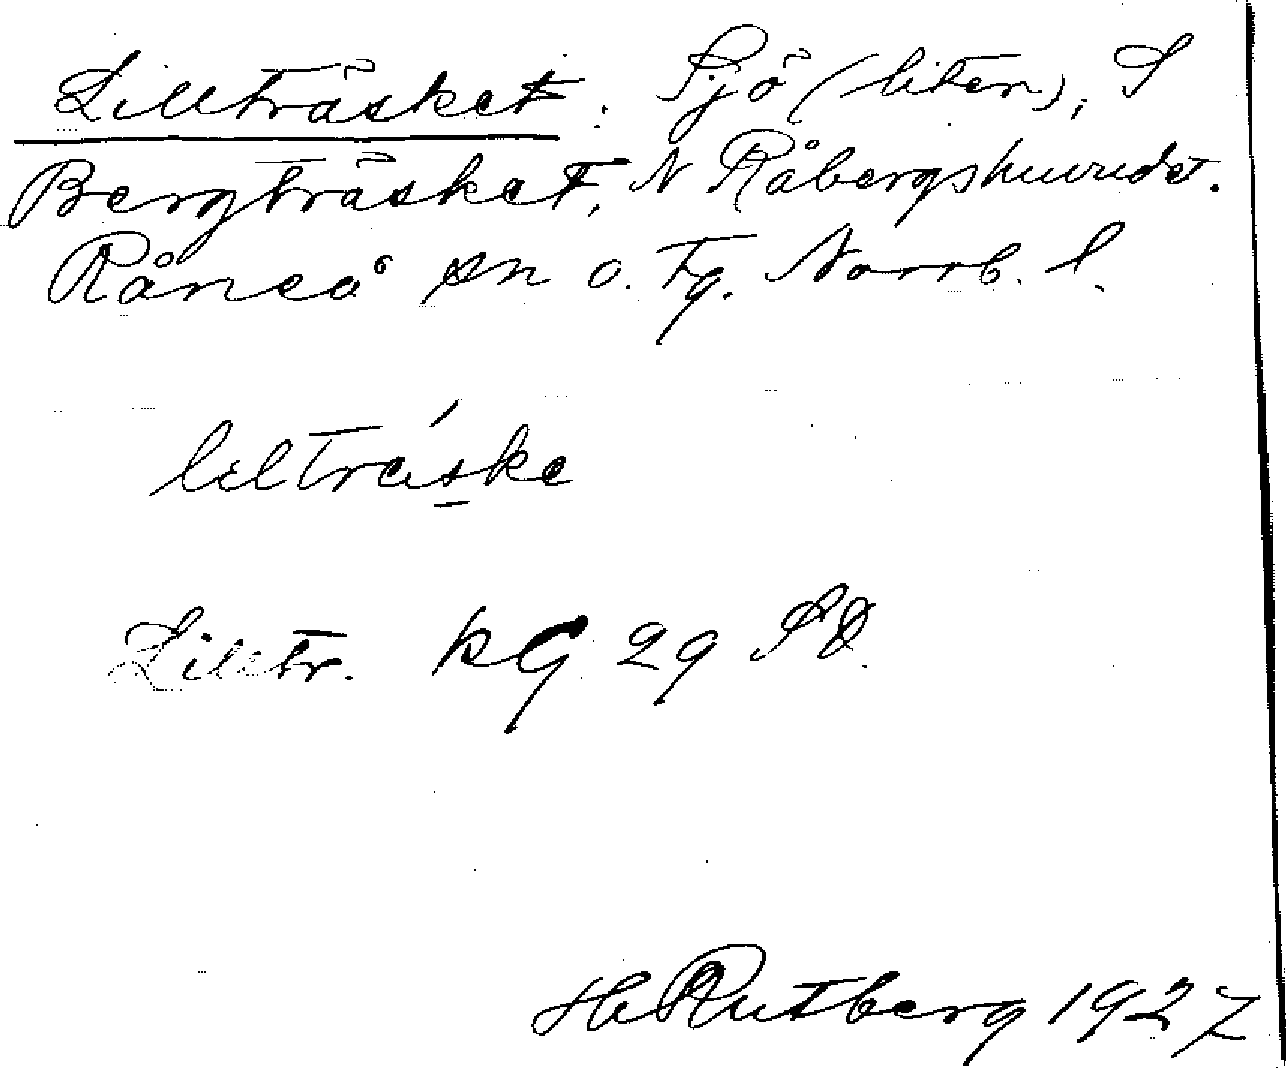 Lillträsket. Sjö (liten), S
Bergträsket, N Råbergshuvudet.
Råneå sn o. tg. Norrb. l.
liltráske
Lilltr. KG 29 SO.
H Rutberg 1927